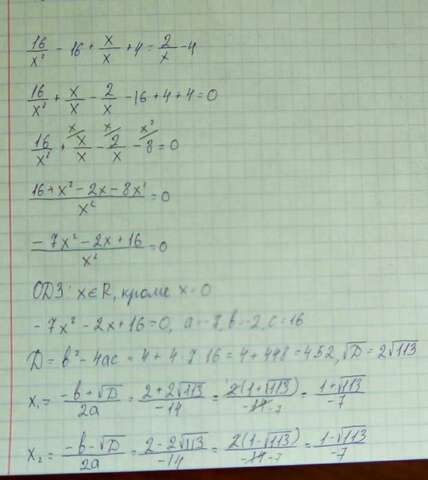 16/x² - 16 + x/x + 4 = 2/x - 4
16/x² + x/x - 2/x - 16 + 4 + 4 = 0
16/x² + x/x - 2/x - 8 = 0
(16 + x² - 2x - 8x²)/x² = 0
(-7x² - 2x + 16)/x² = 0
ОДЗ: x∈R, кроме x=0
-7x² - 2x + 16 = 0, a=-7, b=-2, c=16
D = b² - 4ac = 4 + 4·7·16 = 4 + 448 = 452, √D = 2√113
x₁ = (-b+√D)/2a = (2+2√113)/-14 = 2(1+√113)/-14 -7 = (1+√113)/-7
x₂ = (-b-√D)/2a = (2-2√113)/-14 = 2(1-√113)/-14 -7 = (1-√113)/-7